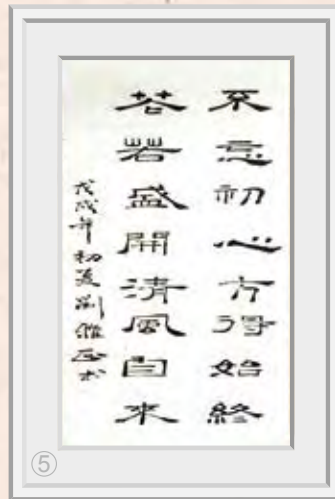 不忘初心方得始終
花若盛開清風自來
戊戌年初夏劉
⑤